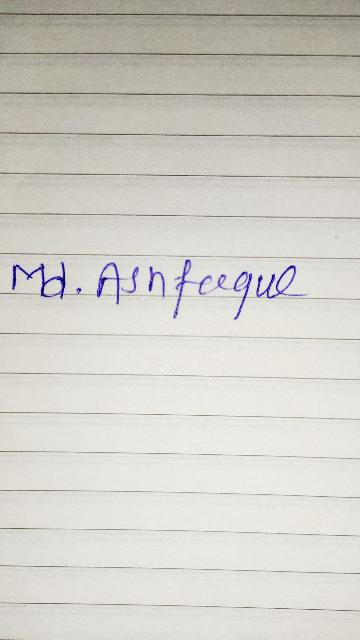 Md. Ashfaque